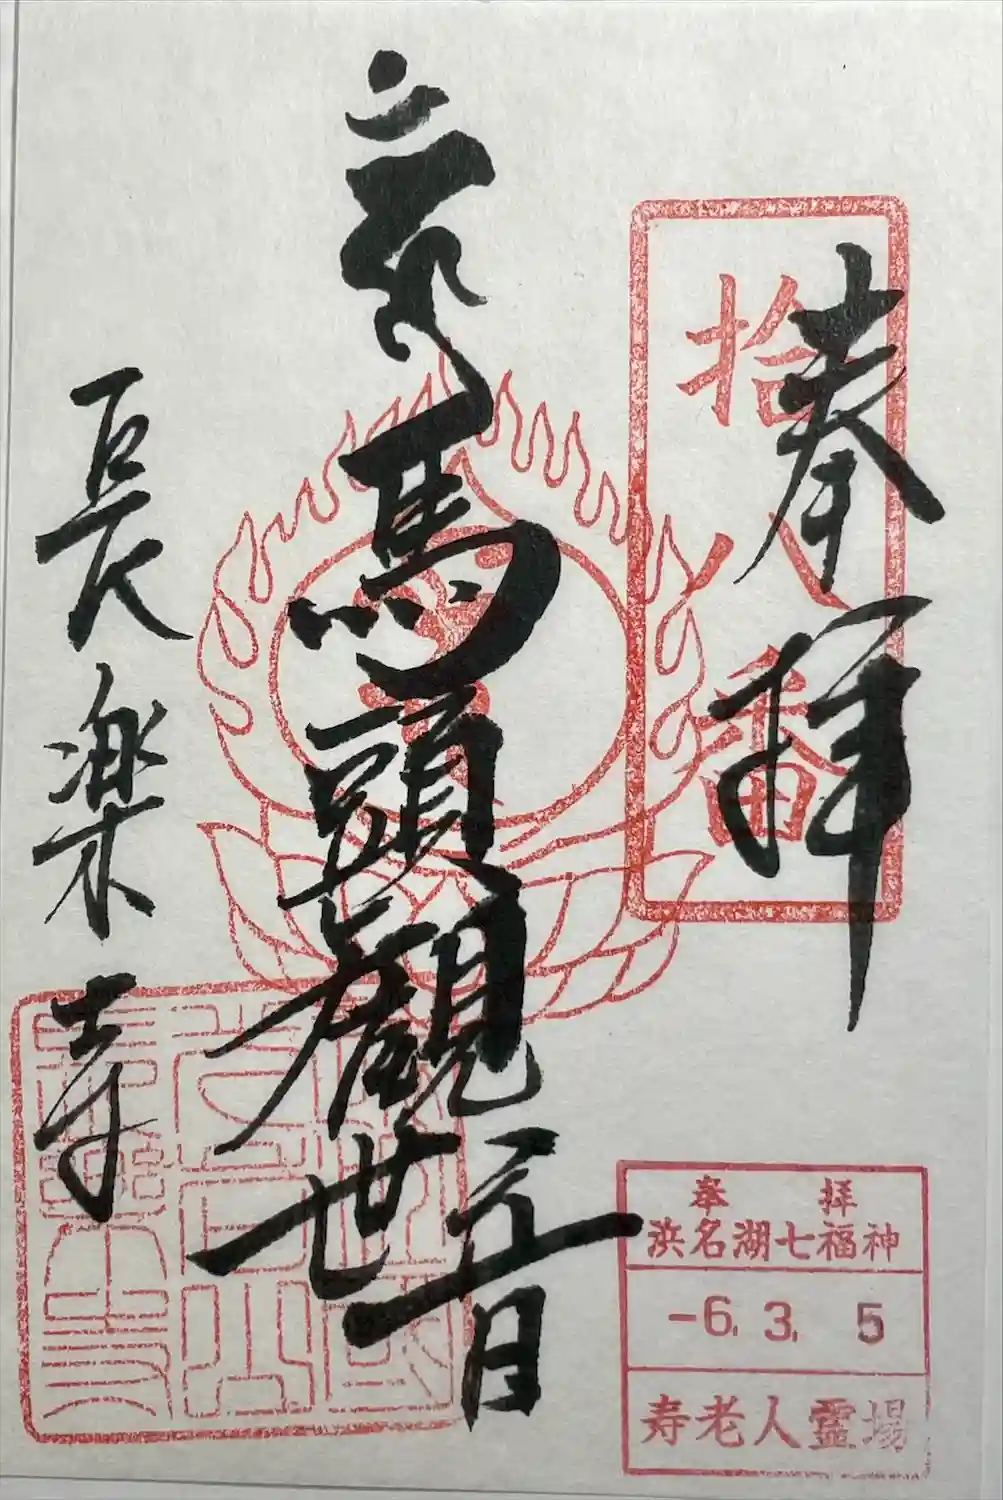 奉拝
拾八番
馬頭觀世音
長楽寺
奉拝
浜名湖七福神
-6. 3. 5
寿老人霊場